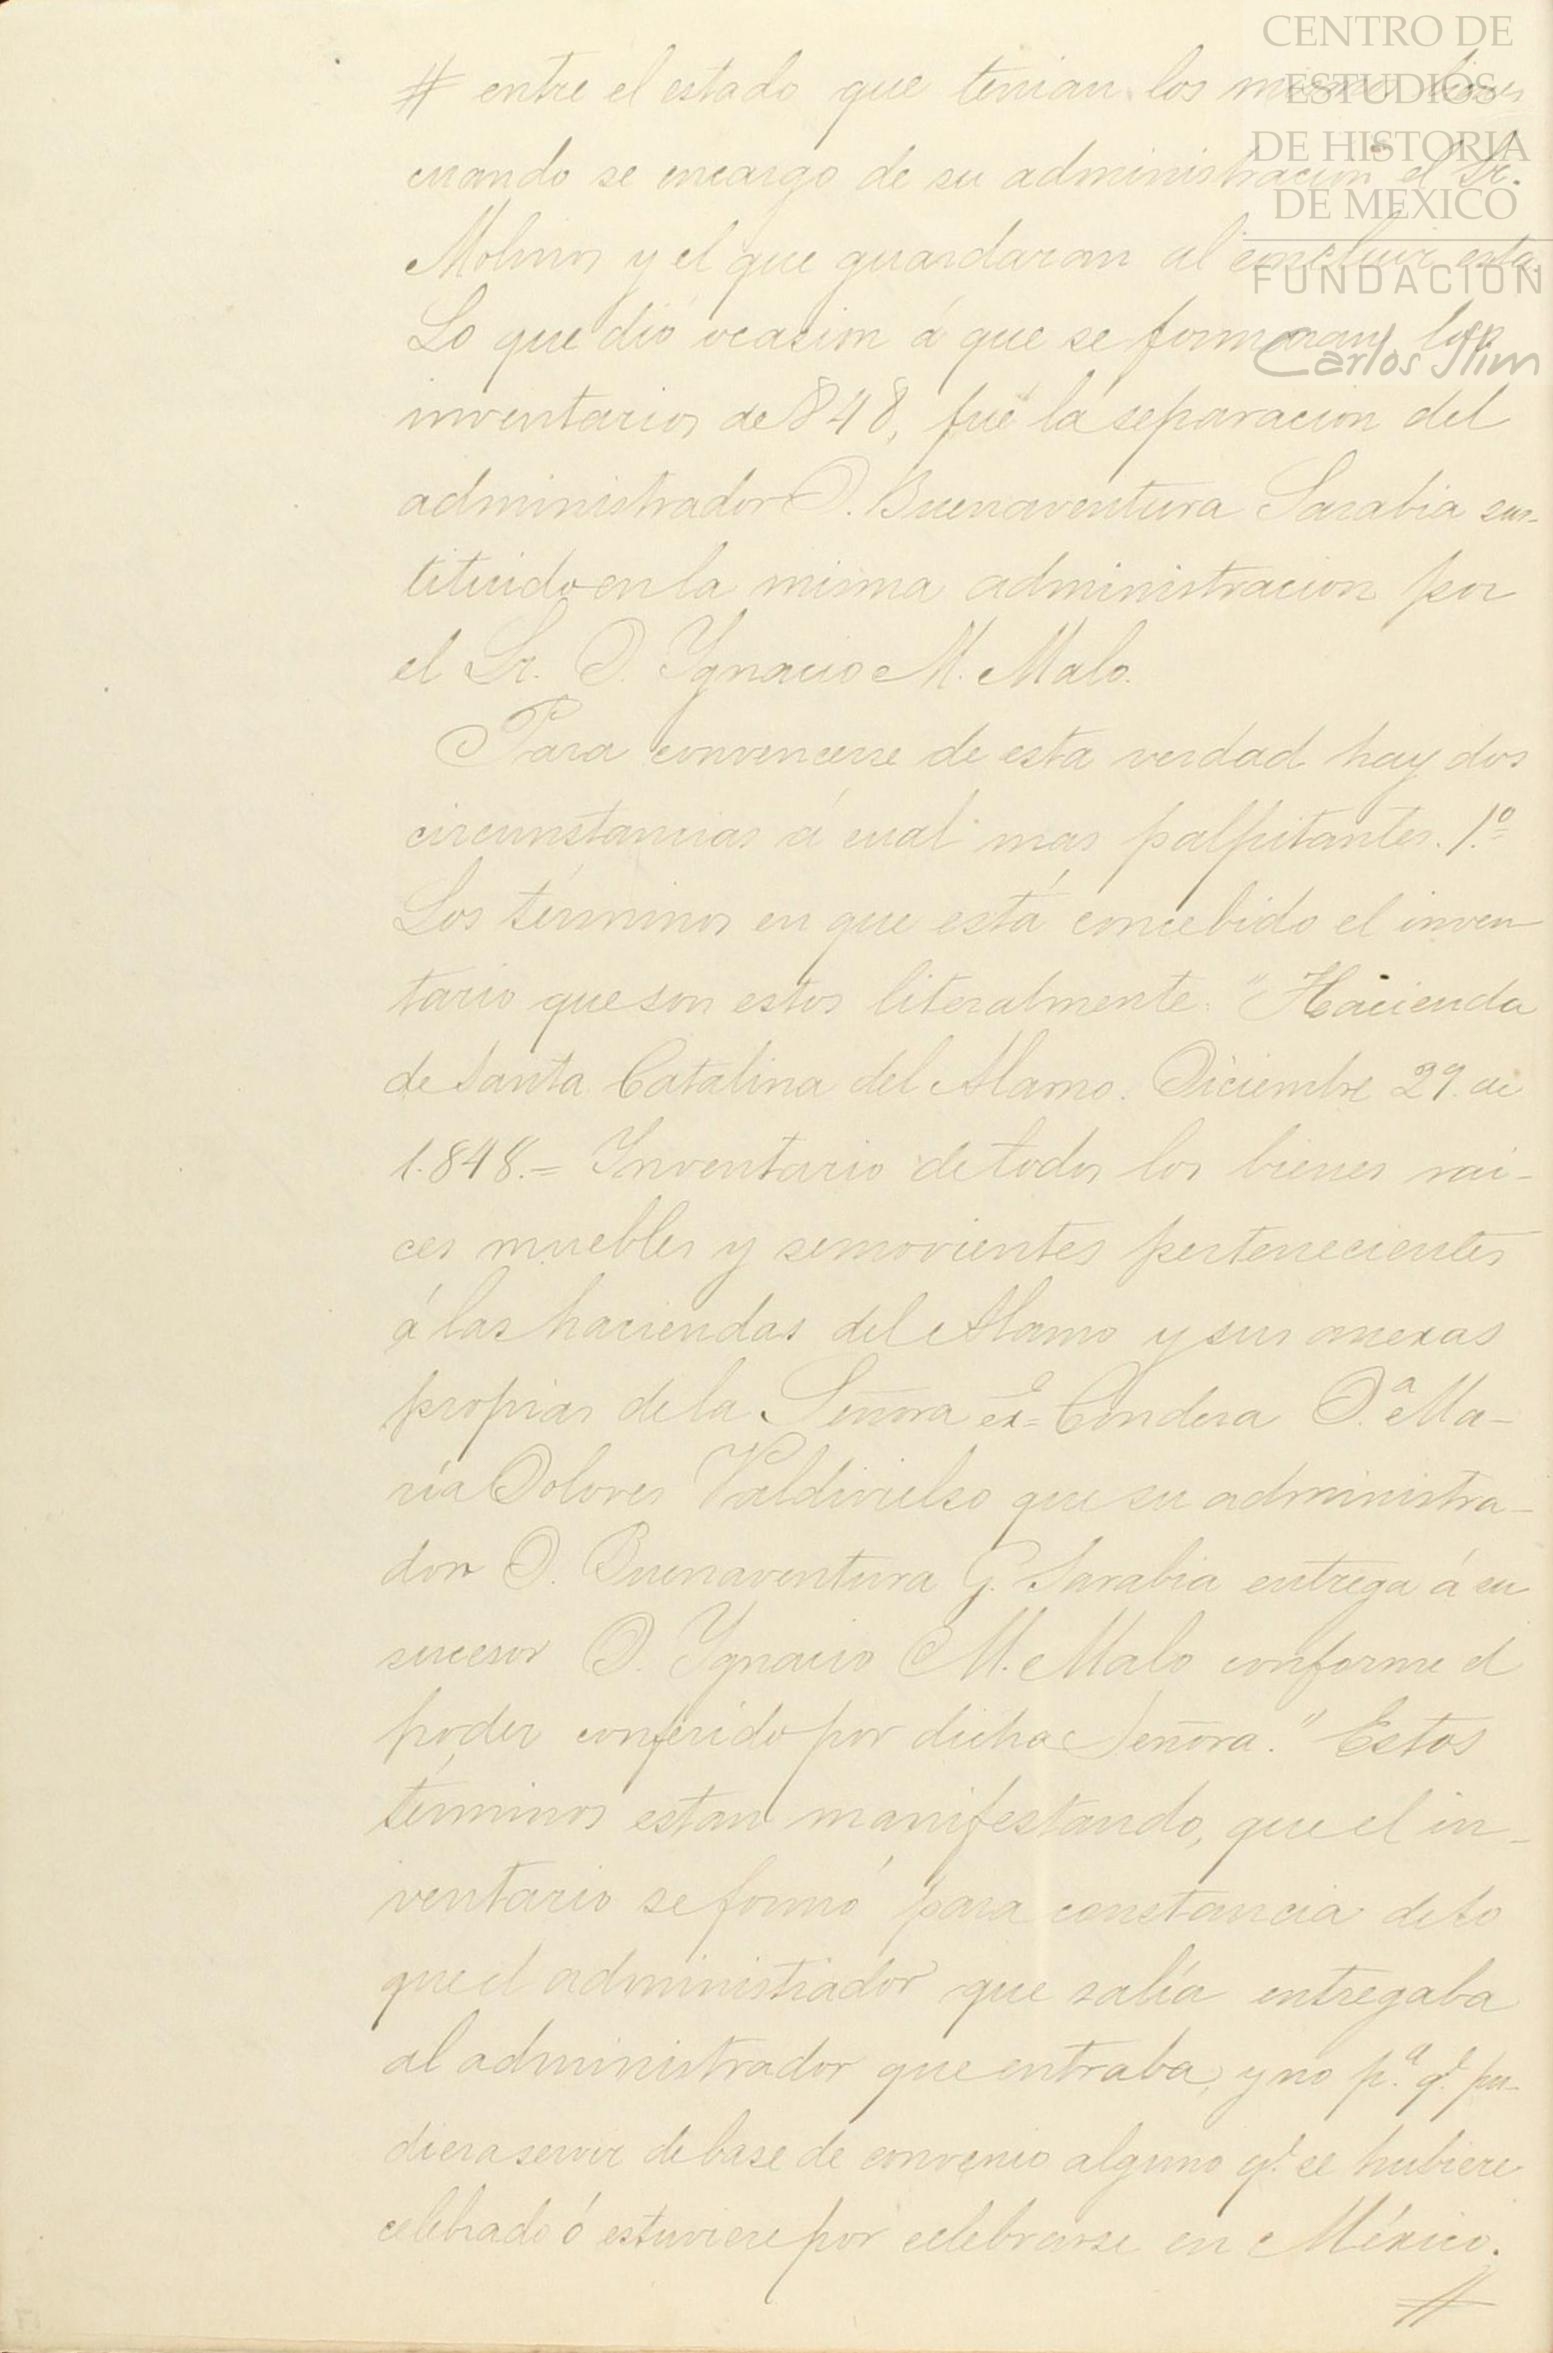 CENTRO DE
ESTUDIOS
DE HISTORIA
DE MEXICO
FUNDACION
Carlos Slim
# entre el estado que tenian los mismos bienes
cuando se encargo de su administracion el Sr.
Molinos y el que guardaran al concluir esta.
Lo que dió ocasion á que se formaran los
inventarios de 848, fué la separacion del
administrador D. Buenaventura Sarabia sus-
tituido en la misma administracion por
el Sr. D. Ygnacio M. Malo.
Para convencerse de esta verdad hay dos
circunstancias á cual mas palpitantes. 1.º
Los términos en que está concebido el inven-
tario que son estos literalmente: "Hacienda
de Santa Catalina del Alamo. Diciembre 29. de
1.848.= Ynventario de todos los bienes rai-
ces muebles y semovientes pertenecientes
á las haciendas del Alamo y sus anexas
propias de la Señora ex= Condesa D.ª Ma-
ria Dolores Valdivielso que su administra-
dor D. Buenaventura G. Sarabia entrega á su
sucesor D. Ygnacio M. Malo conforme el
poder conferido por dicha Señora." Estos
términos estan manifestando, que el in-
ventario se formó para constancia de lo
que el administrador que salía entregaba
al administrador que entraba, y no p.ª q.e pu-
diera servir de base de convenio alguno q.e se hubiere
celebrado ó estuviere por celebrarse en México.
#